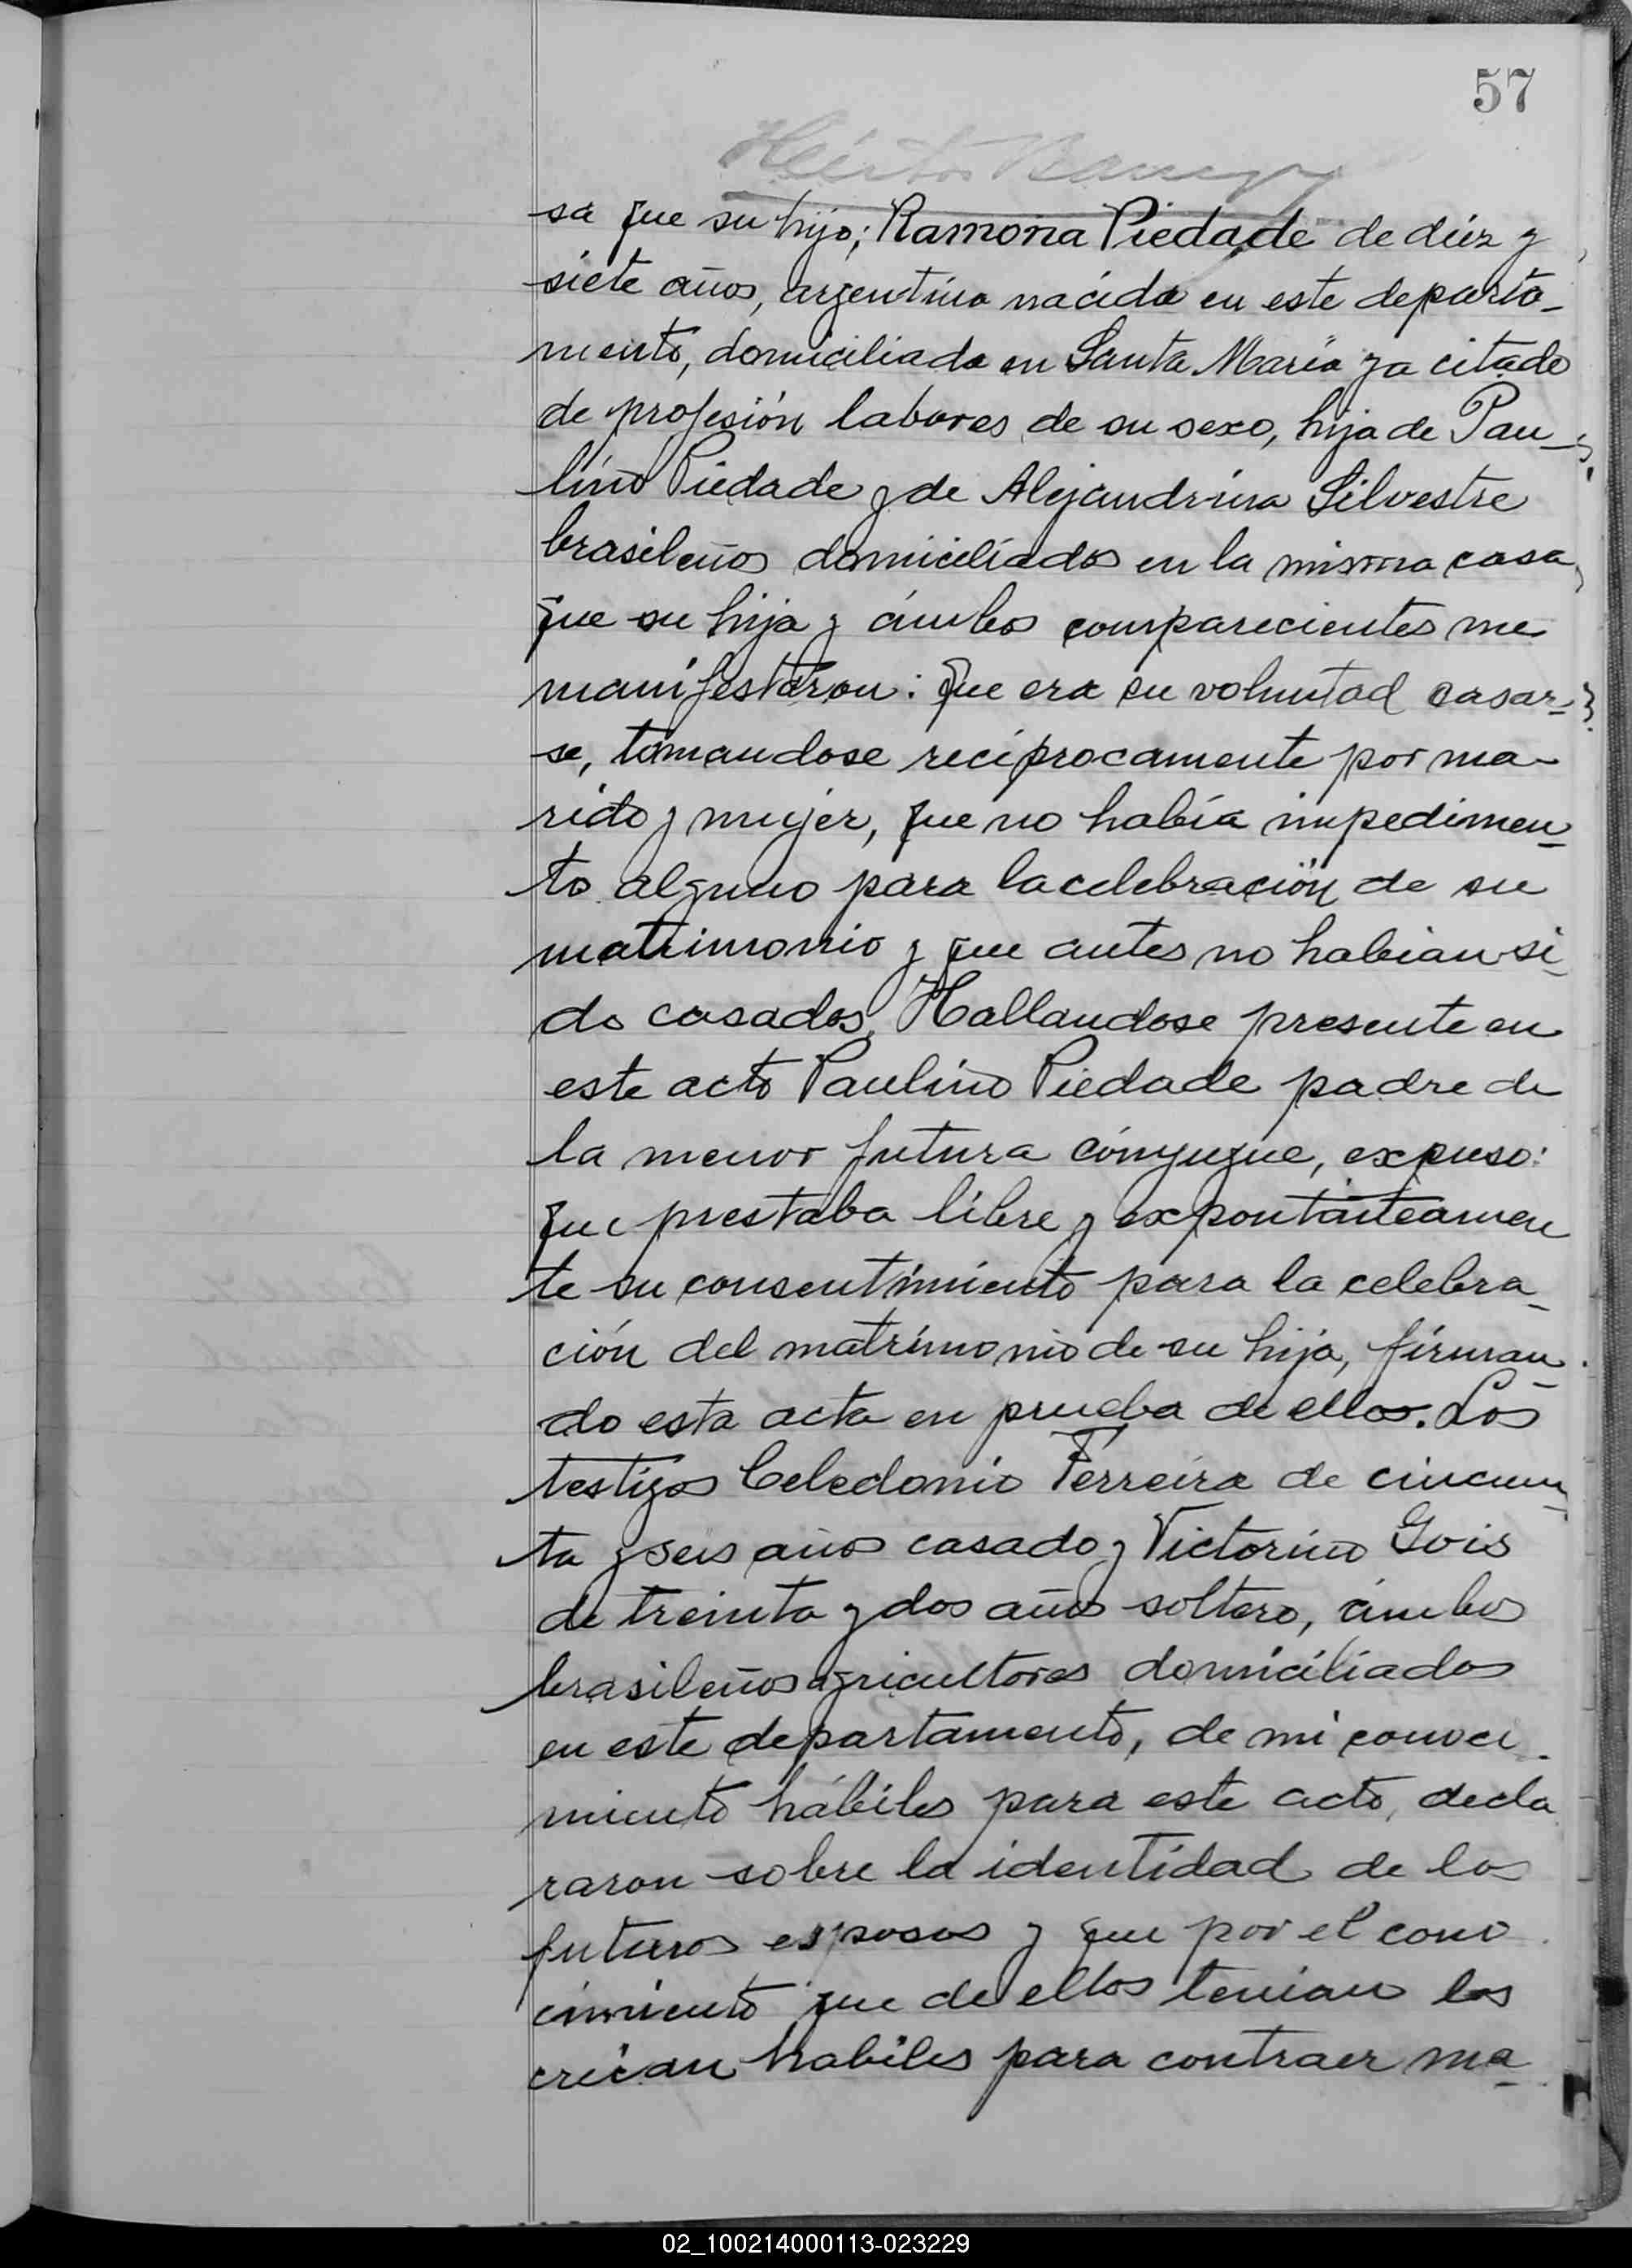 57
Héctor
sa que su hijo; Ramona Piedade de diéz y
siete años, argentina nacida en este departa-
mento, domiciliada en Santa María ya citado
de profesión labores de su sexo, hija de Pau-
lino Piedade y de Alejandrina Silvestre
brasileños domiciliados en la misma casa
que su hija y ámbos comparecientes me
manifestaron: Que era su voluntad casar-
se, tomandose reciprocamente por ma-
rido y mujer, que no había impedimen-
to alguno para la celebración de su
matrimonio y que antes no habian si-
do casados, Hallandose presente en
este acto Paulino Piedade padre de
la menor futura cónyugue, expuso:
que prestaba libre y expontáneamen
te su consentimiento para la celebra-
ción del matrimonio de su hija, firman-
do esta acta en prueba de ello. Los
testigos Celedonio Ferreira de cincuen-
ta y seis años casado y Victorino Gois
de treinta y dos años soltero, ámbos
brasileños agricultores domiciliados
en este departamento, de mi conoci-
miento hábiles para este acto, decla
raron sobre la identidad de los
futuros esposos y que por el cono
cimiento que de ellos tenian los
creían habiles para contraer ma-
02_100214000113-023229